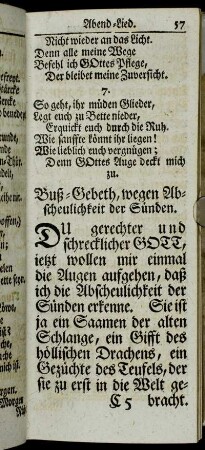 Abend-Lied. 57
Nicht wieder an das Licht.
Denn alle meine Wege
Befehl ich GOttes Pflege,
Der bleibet meine Zuversicht.
7.
So geht, ihr müden Glieder,
Legt euch zu Bette nieder,
Erquickt euch durch die Ruh.
Wie sanffte könnt ihr liegen!
Wie lieblich euch vergnügen;
Denn GOttes Auge deckt mich
zu.
Buß-Gebeth, wegen Ab-
scheulichkeit der Sünden.
DU gerechter und
schrecklicher GOTT,
jetzt wollen mir einmal
die Augen aufgehen, daß
ich die Abscheulichkeit der
Sünden erkenne. Sie ist
ja ein Saamen der alten
Schlange, ein Gifft des
höllischen Drachens, ein
Gezüchte des Teufels, der
sie zu erst in die Welt ge-
C 5 bracht.